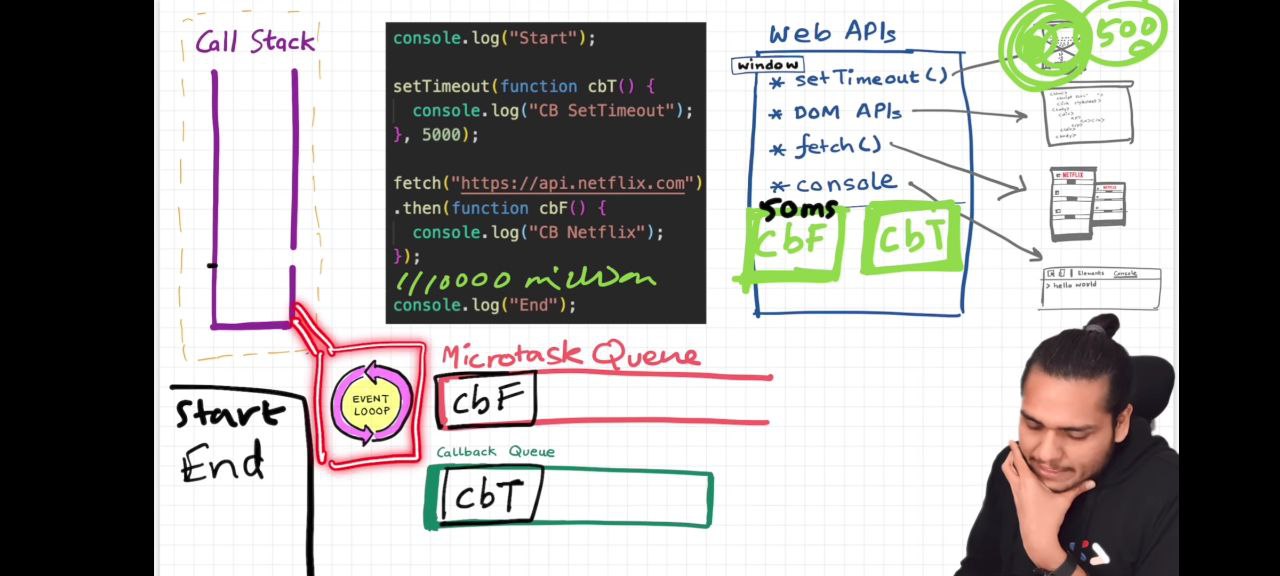 Call Stack
console.log("Start");
setTimeout(function cbT() {
console.log("CB SetTimeout");
}, 5000);
fetch("https://api.netflix.com")
.then(function cbF() {
console.log("CB Netflix");
});
console.log("End");
million
Web APIs
window
* setTimeout()
* DOM APIs
* fetch()
* console
50ms
cbF
cbT
NETFLIX
NETFLIX
Elements Console
> hello world
Microtask Queue
cbF
EVENT
LOOOP
Callback Queue
cbT
Start
End